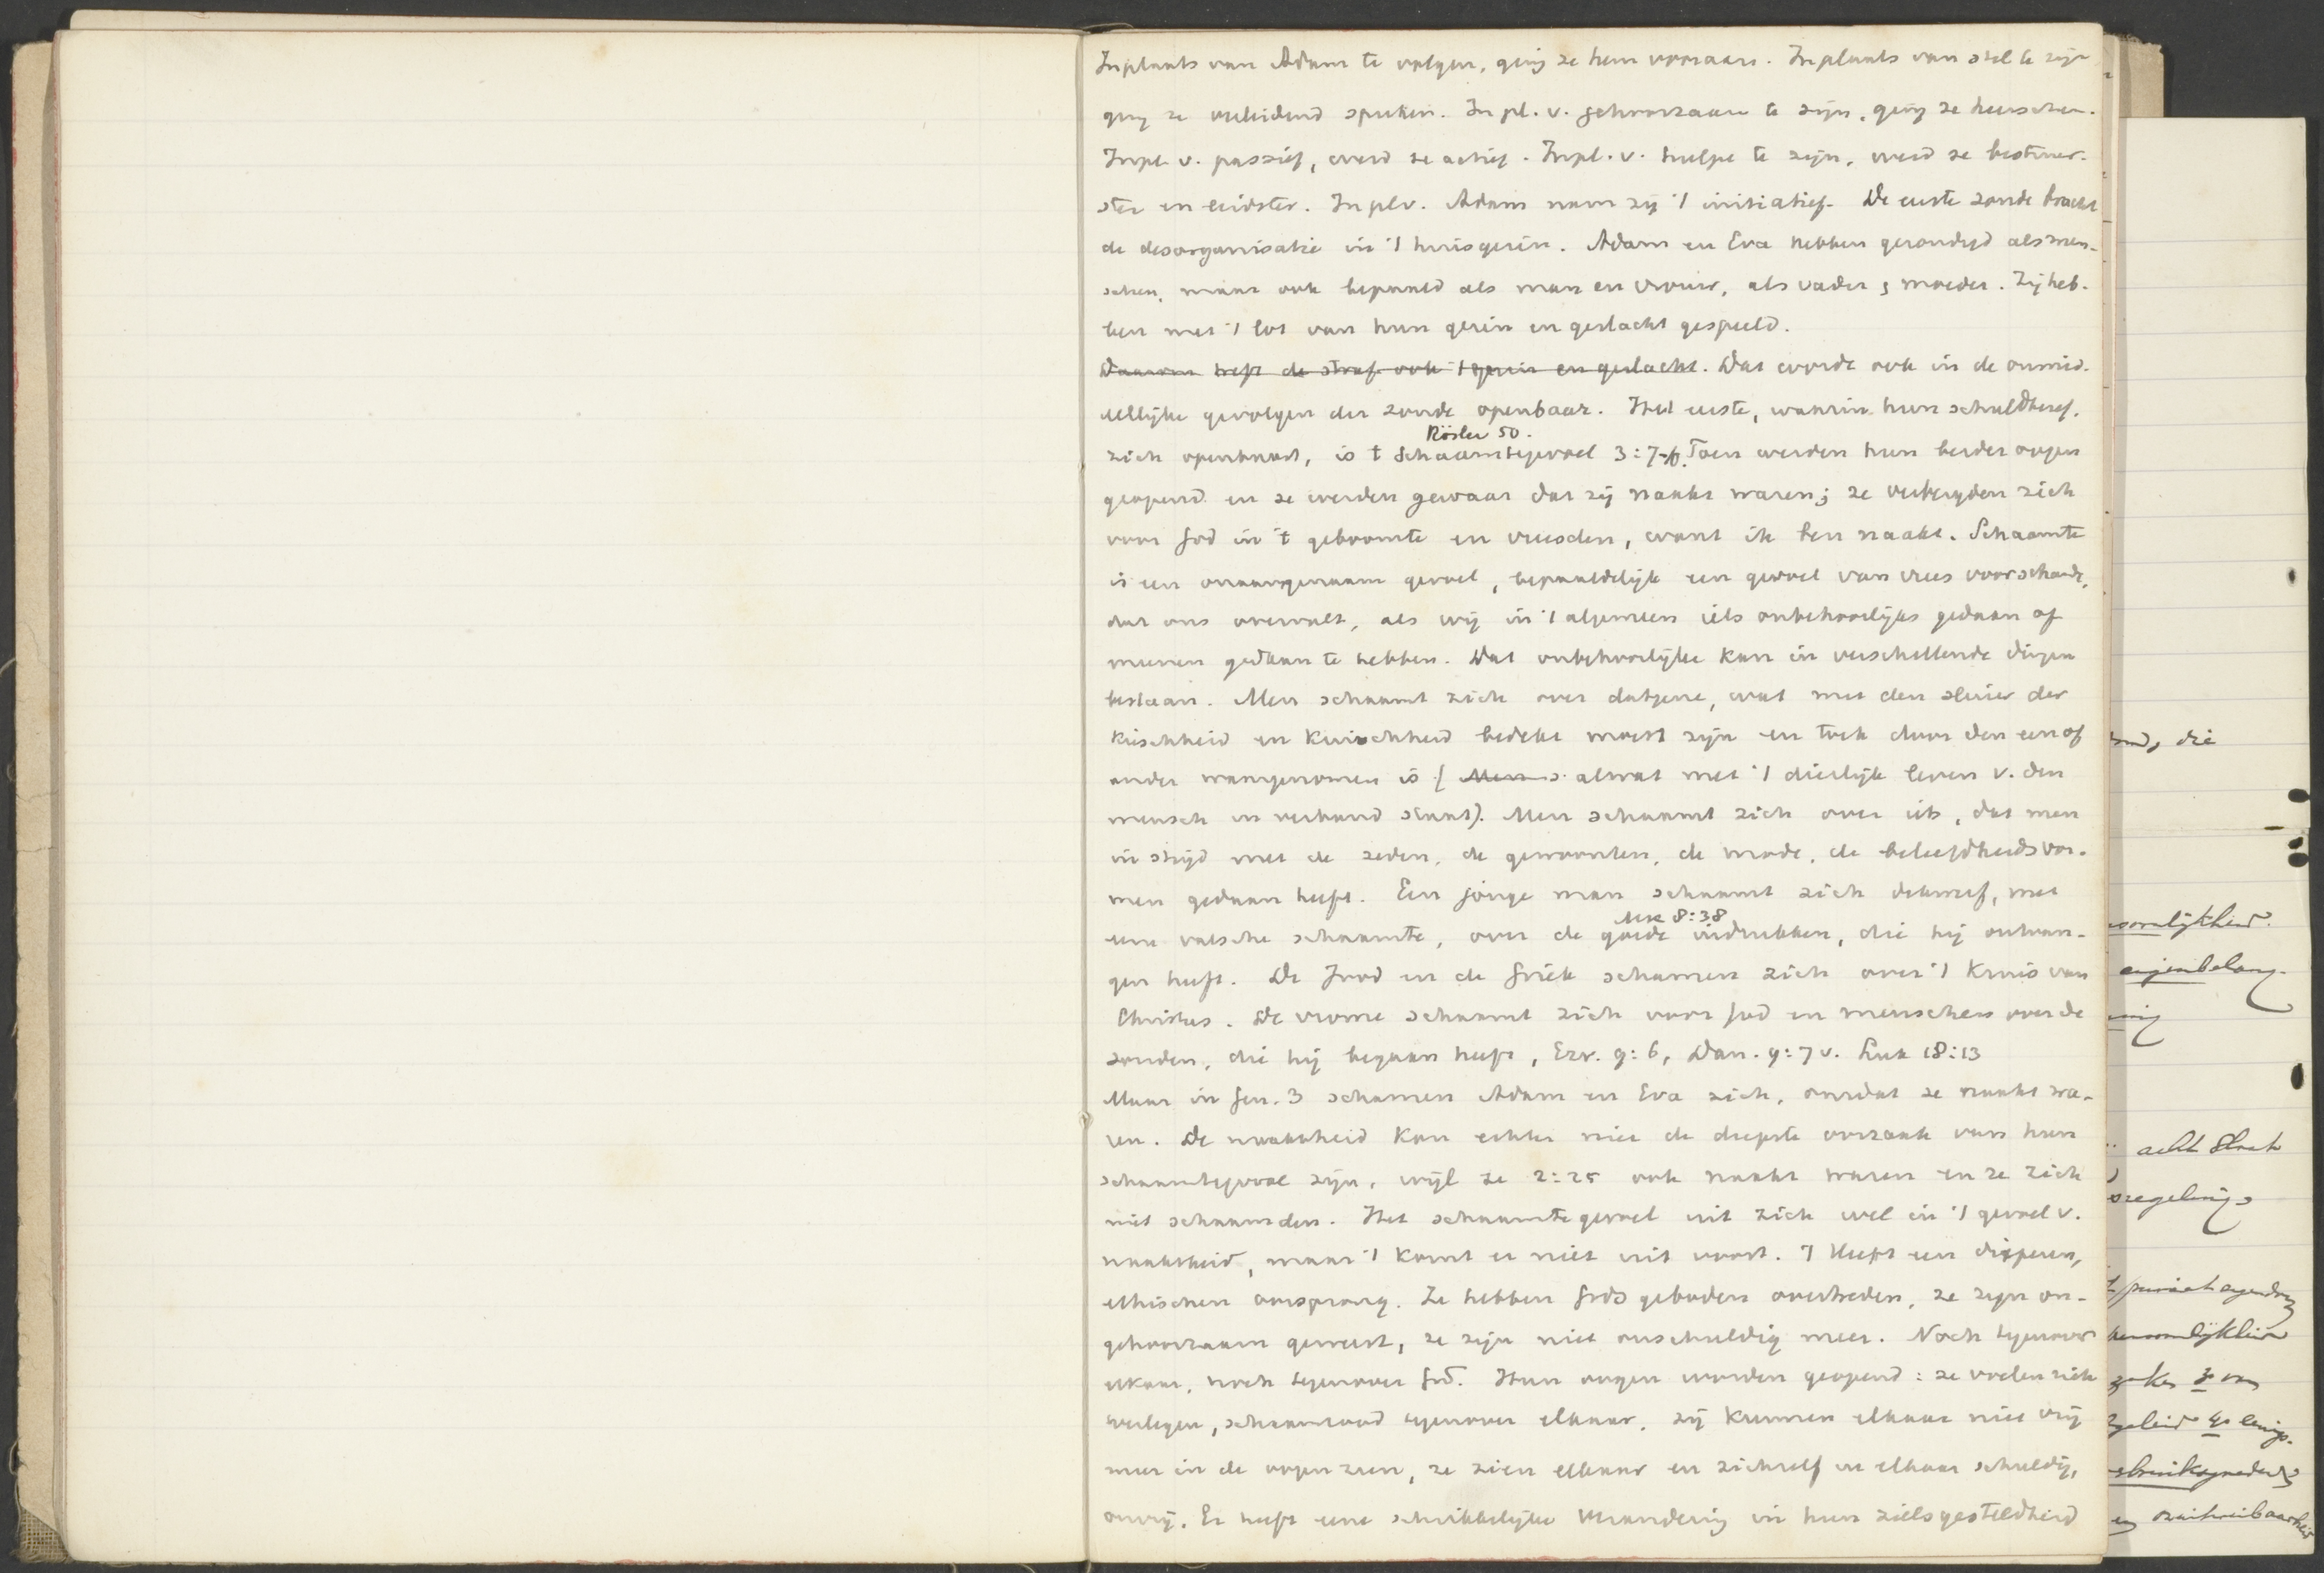 Inplaats van Adam te volgen, ging ze hem vooraan. Inplaats van stil te zijn
ging ze verleidend spreken. In pl. v. gehoorzaam te zijn, ging ze heerschen.
Inpl. v. passief, werd ze actief. Inpl. v. hulpe te zijn, werd ze bestuur-
ster en leidster. In pl v. Adam nam zij 't initiatief. De eerste zonde bracht
de desorganisatie in 't huisgezin. Adam en Eva hebben gezondigd als men-
schen, maar ook bepaald als man en vrouw, als vader & moeder. Zij heb-
ben met 't lot van hun gezin en geslacht gespeeld.
Daarom treft de straf ook 't gezin en geslacht. Dat wordt ook in de onmid-
dellijke gevolgen der zonde openbaar. Het eerste, waarin hun schuldbesef,
Rösler 50.
zich openbaart, is t schaamtegevoel 3:7-10. Toen werden hun beider oogen
geopend en ze werden gewaar dat zij naakt waren; ze verbergden zich
voor God in 't geboomte en vreesden, want ik ben naakt. Schaamte
is een onaangenaam gevoel, bepaaldelijk een gevoel van vrees voor schande,
dat ons overvalt, als wij in 't algemeen iets onbehoorlijks gedaan of
meenen gedaan te hebben. Dat onbehoorlijke kan in verschillende dingen
bestaan. Men schaamt zich over datgene, wat met den sluier der
kieschheid en kuischheid bedekt moest zijn en toch door den een of
ander waargenomen is (Men s. alwat met 't dierlijk leven v. den
mensch in verband staat). Men schaamt zich over iets, dat men
in strijd met de zeden, de gewoonten, de mode, de beleefdheidsvor-
men gedaan heeft. Een jonge man schaamt zich dikwerf, met
Mk 8:38
eene valsche schaamte, over de goede indrukken, die hij ontvan-
gen heeft. De Jood en de Griek schamen zich over 't kruis van
Christus. De vrome schaamt zich voor God en menschen over de
zonden, die hij begaan heeft, Ezr. 9:6, Dan. 9:7 v. Luk 18:13
Maar in Gen. 3 schamen Adam en Eva zich, omdat ze naakt wa-
ren. De naaktheid kan echter niet de diepste oorzaak van hun
schaamtegevoel zijn, wijl ze 2:25 ook naakt waren en ze zich
niet schaamden. Het schaamtegevoel uit zich wel in 't gevoel v.
naaktheid, maar 't komt er niet uit voort. 't Heeft een dieperen,
ethischen oorsprong. Ze hebben Gods geboden overtreden, ze zijn on-
gehoorzaam geweest, ze zijn niet onschuldig meer. Noch tegenover
elkaar, noch tegenover God. Hun oogen worden geopend: ze voelen zich
verlegen, schaamrood tegenover elkaar, zij kunnen elkaar niet vrij
meer in de oogen zien, ze zien elkaar en zichzelf en elkaar schuldig,
onvrij. Er heeft eene schrikkelijke verandering in hun zielsgesteldheid
die
eigenbelang-
acht slaat